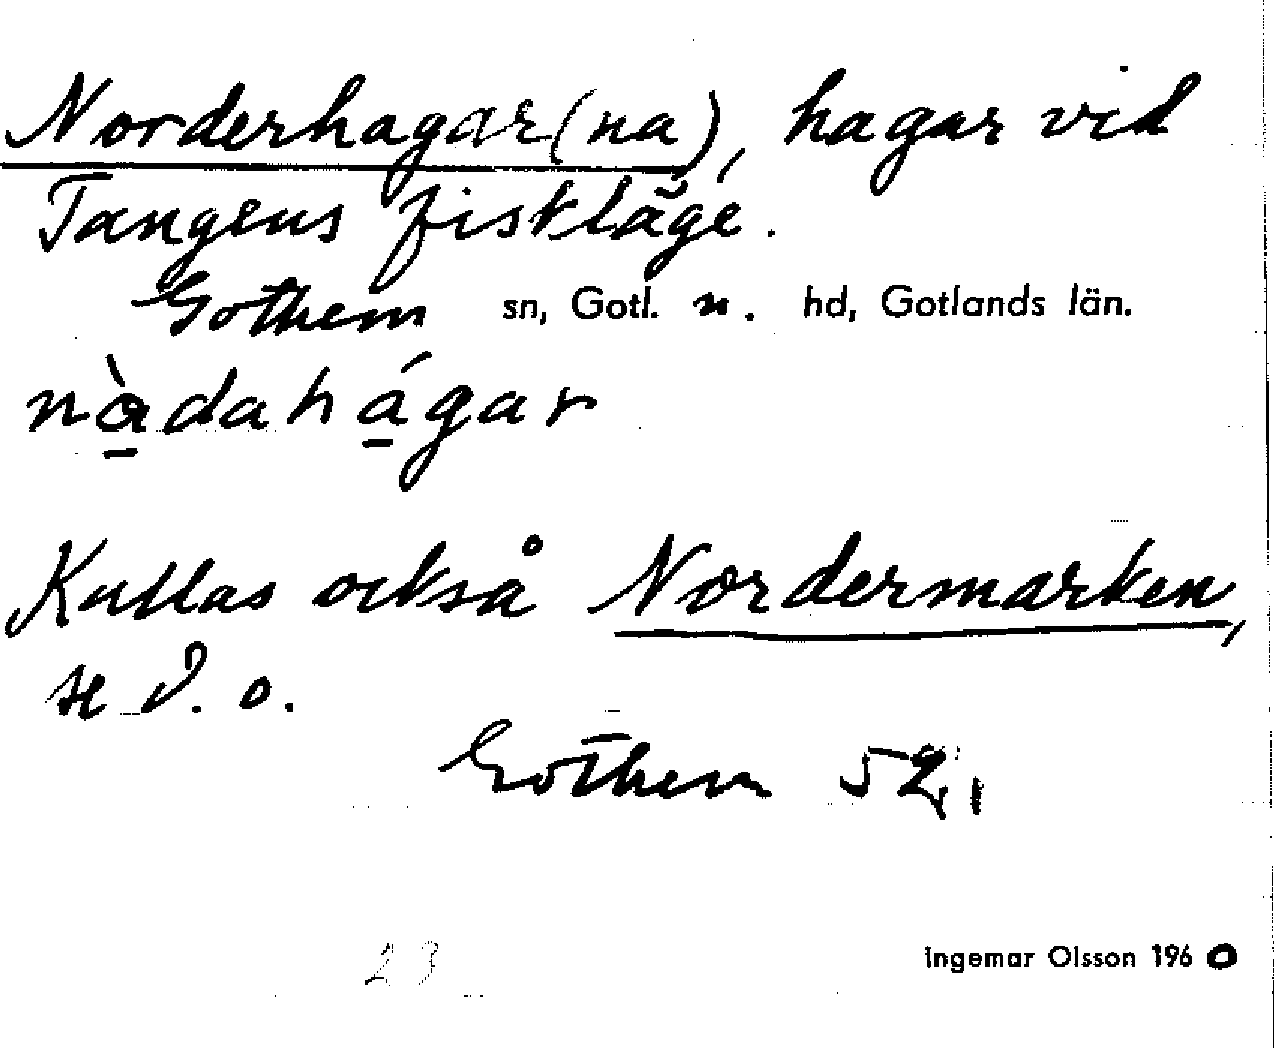 Norderhagar(na), hagar vid
Tangens fiskläge.
Gothem sn, Gotl. n. hd, Gotlands län.
nàdahágar
Kallas också Nordermarken,
se d. o.
Gothem 52,
Ingemar Olsson 1960
23